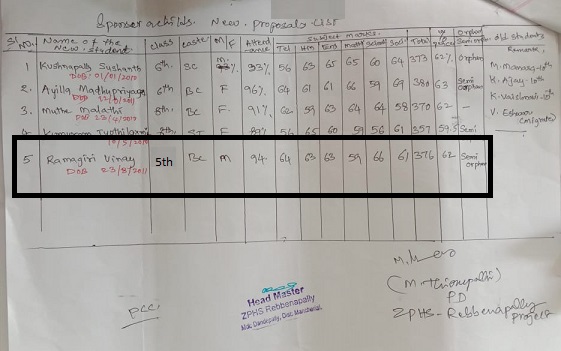 Sponser a child. New. proposals List
Sl. No. Name of the New student class caste M/F Attendance Subject marks. Tel Hin Eng maths Science Soci. Total % Orphan Semi orphan old students Remarks,
1 Kushnapally Sushanth 6th. SC M. 93% 56 63 65 65 60 64 373 62% orphan M. Manasa-10th
DOB 01/01/2010
2. Ayilla Madhupriya 6th BC F 96% 64 61 61 66 59 69 380 63 Semi orphan K. Ajay-10th
DOB
K. Vaishnavi-10th
3. Muthe Malathi 8th. BC F. 91% 62 59 63 64 64 58 370 62 – V. Eshwar
DOB 23/4/ (migrate)
4. Jyothilaxmi 8th. F 65 60 59 56 61 357 59.5 Semi
5 Ramagiri Vinay 5th BC M 94 64 63 63 59 66 61 376 62 Semi orphan
DOB 23/8/2011
(M. Thirupathi)
PD
ZPHS-Rebbenapally
project
Head Master
ZPHS Rebbenapally
Mdl. Dandepally, Dist. Mancherial